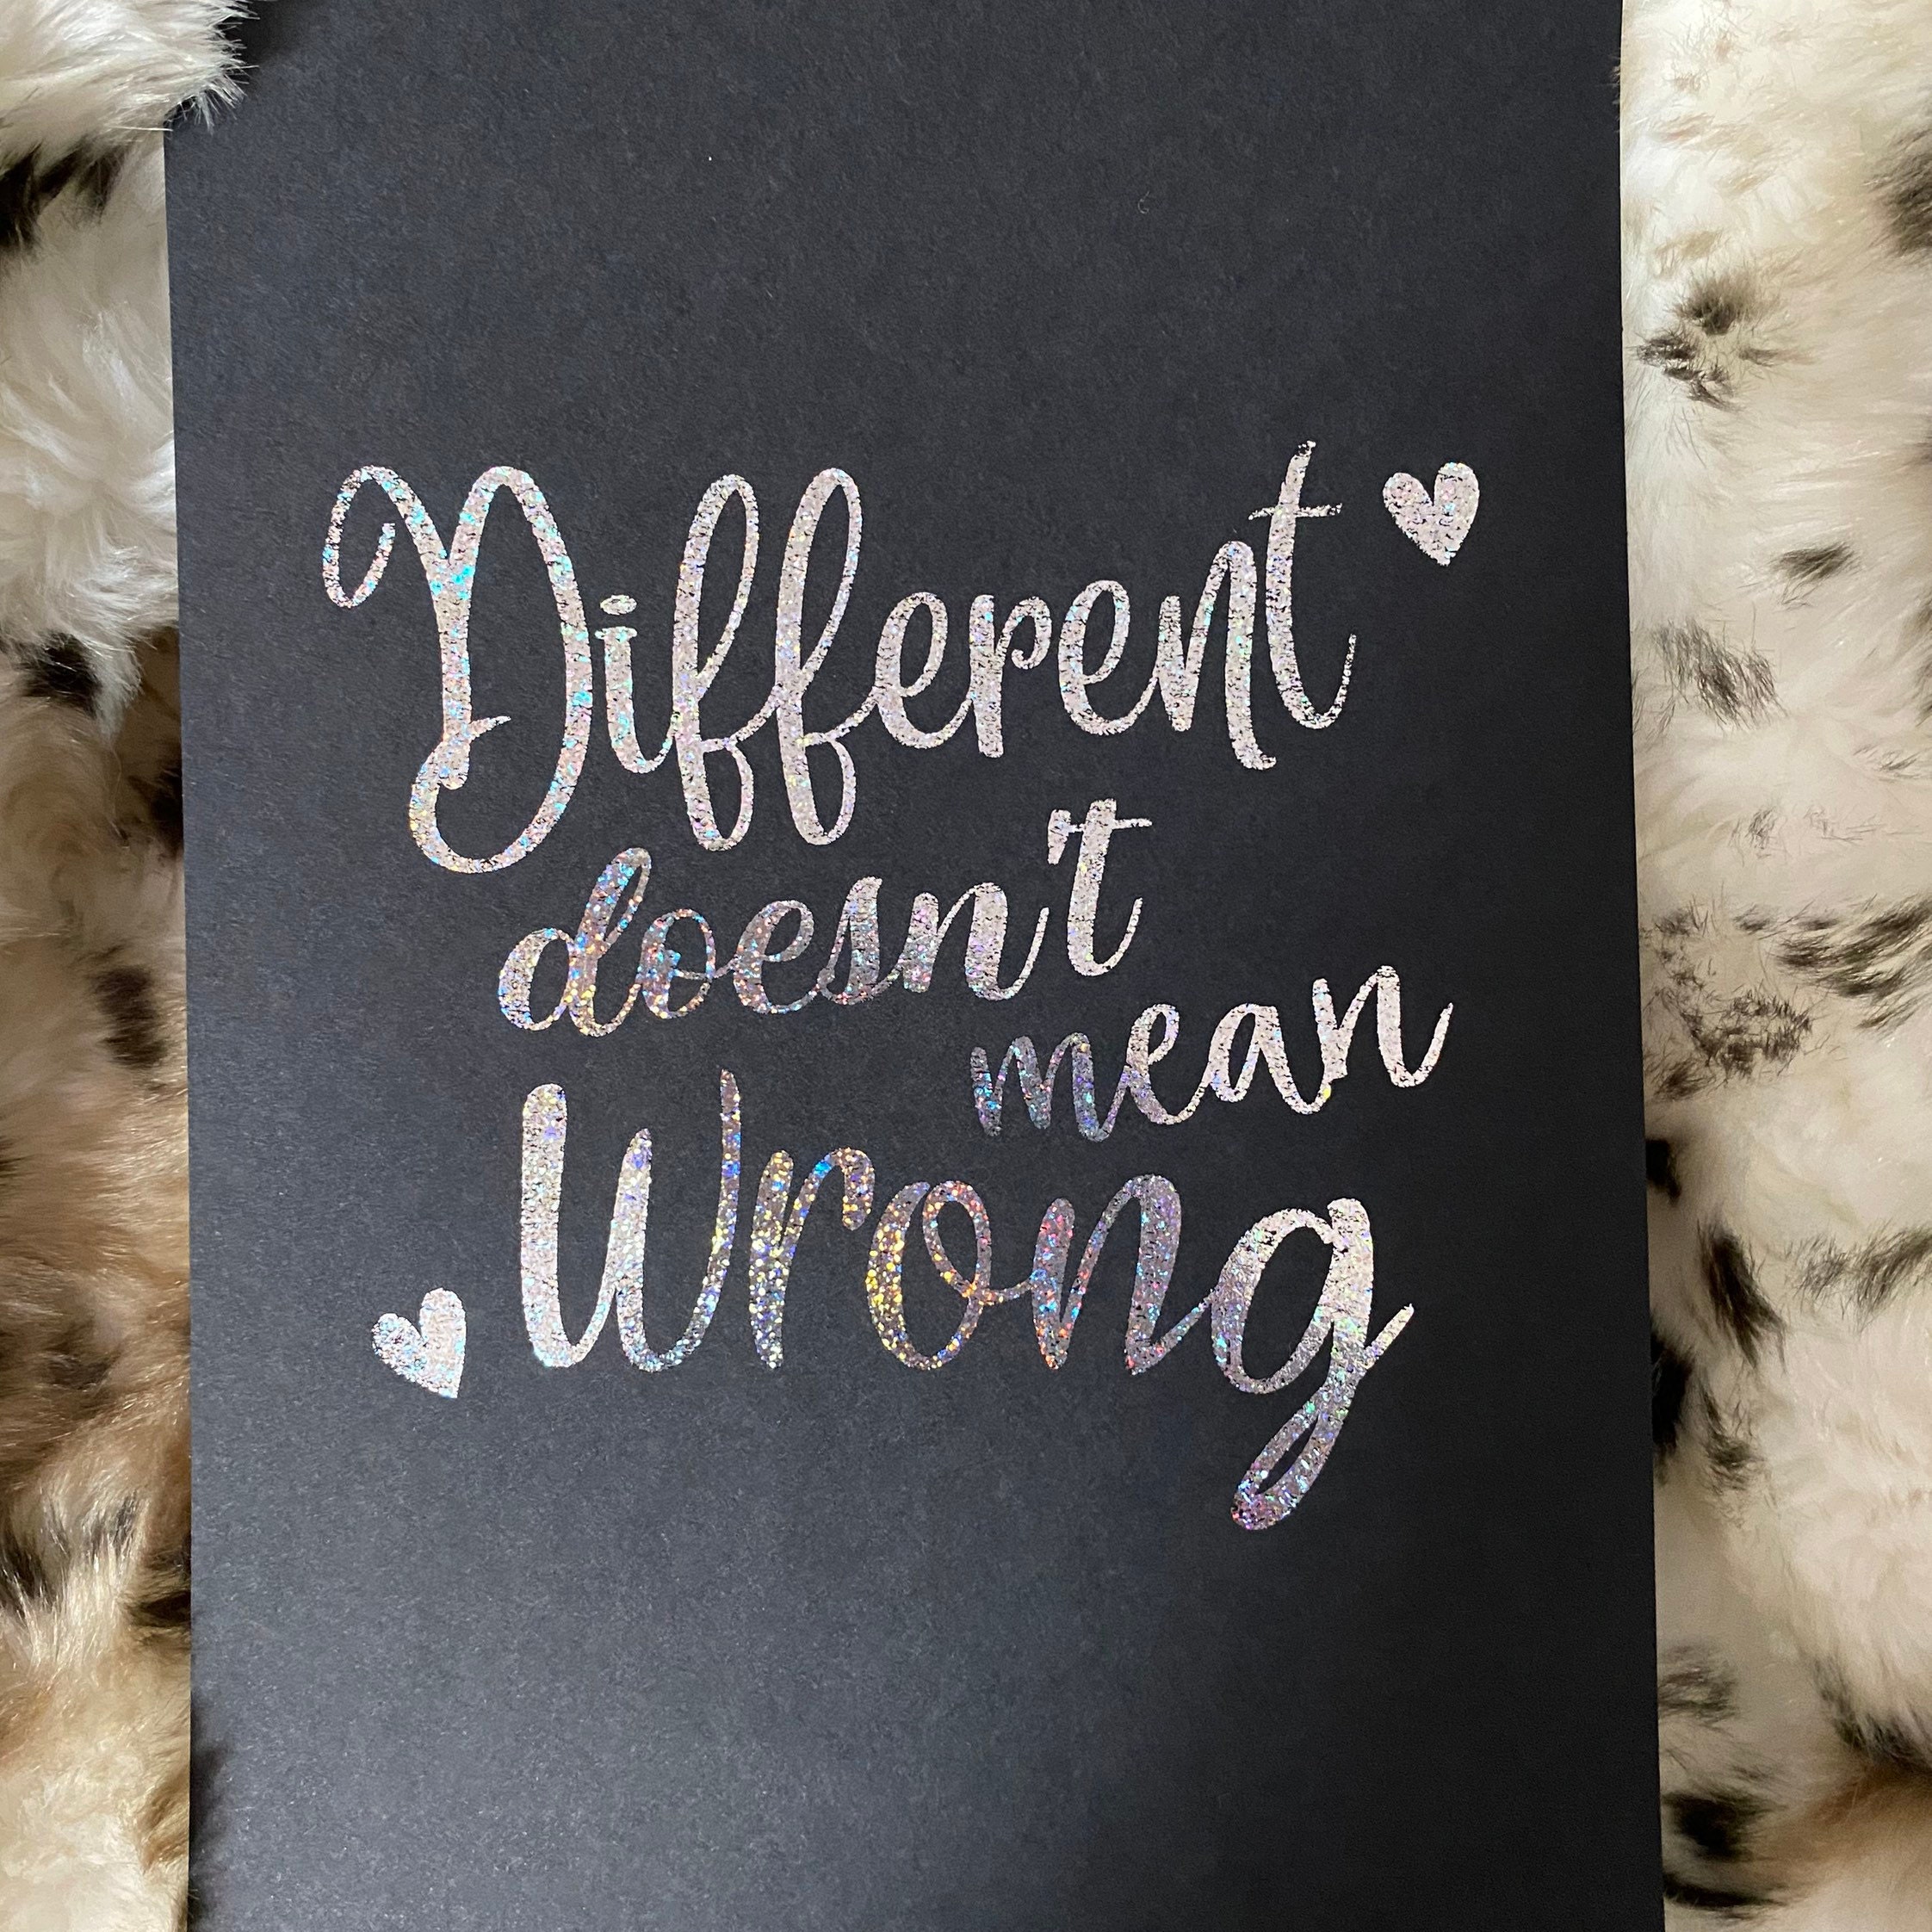 Different
doesn't
mean
Wrong